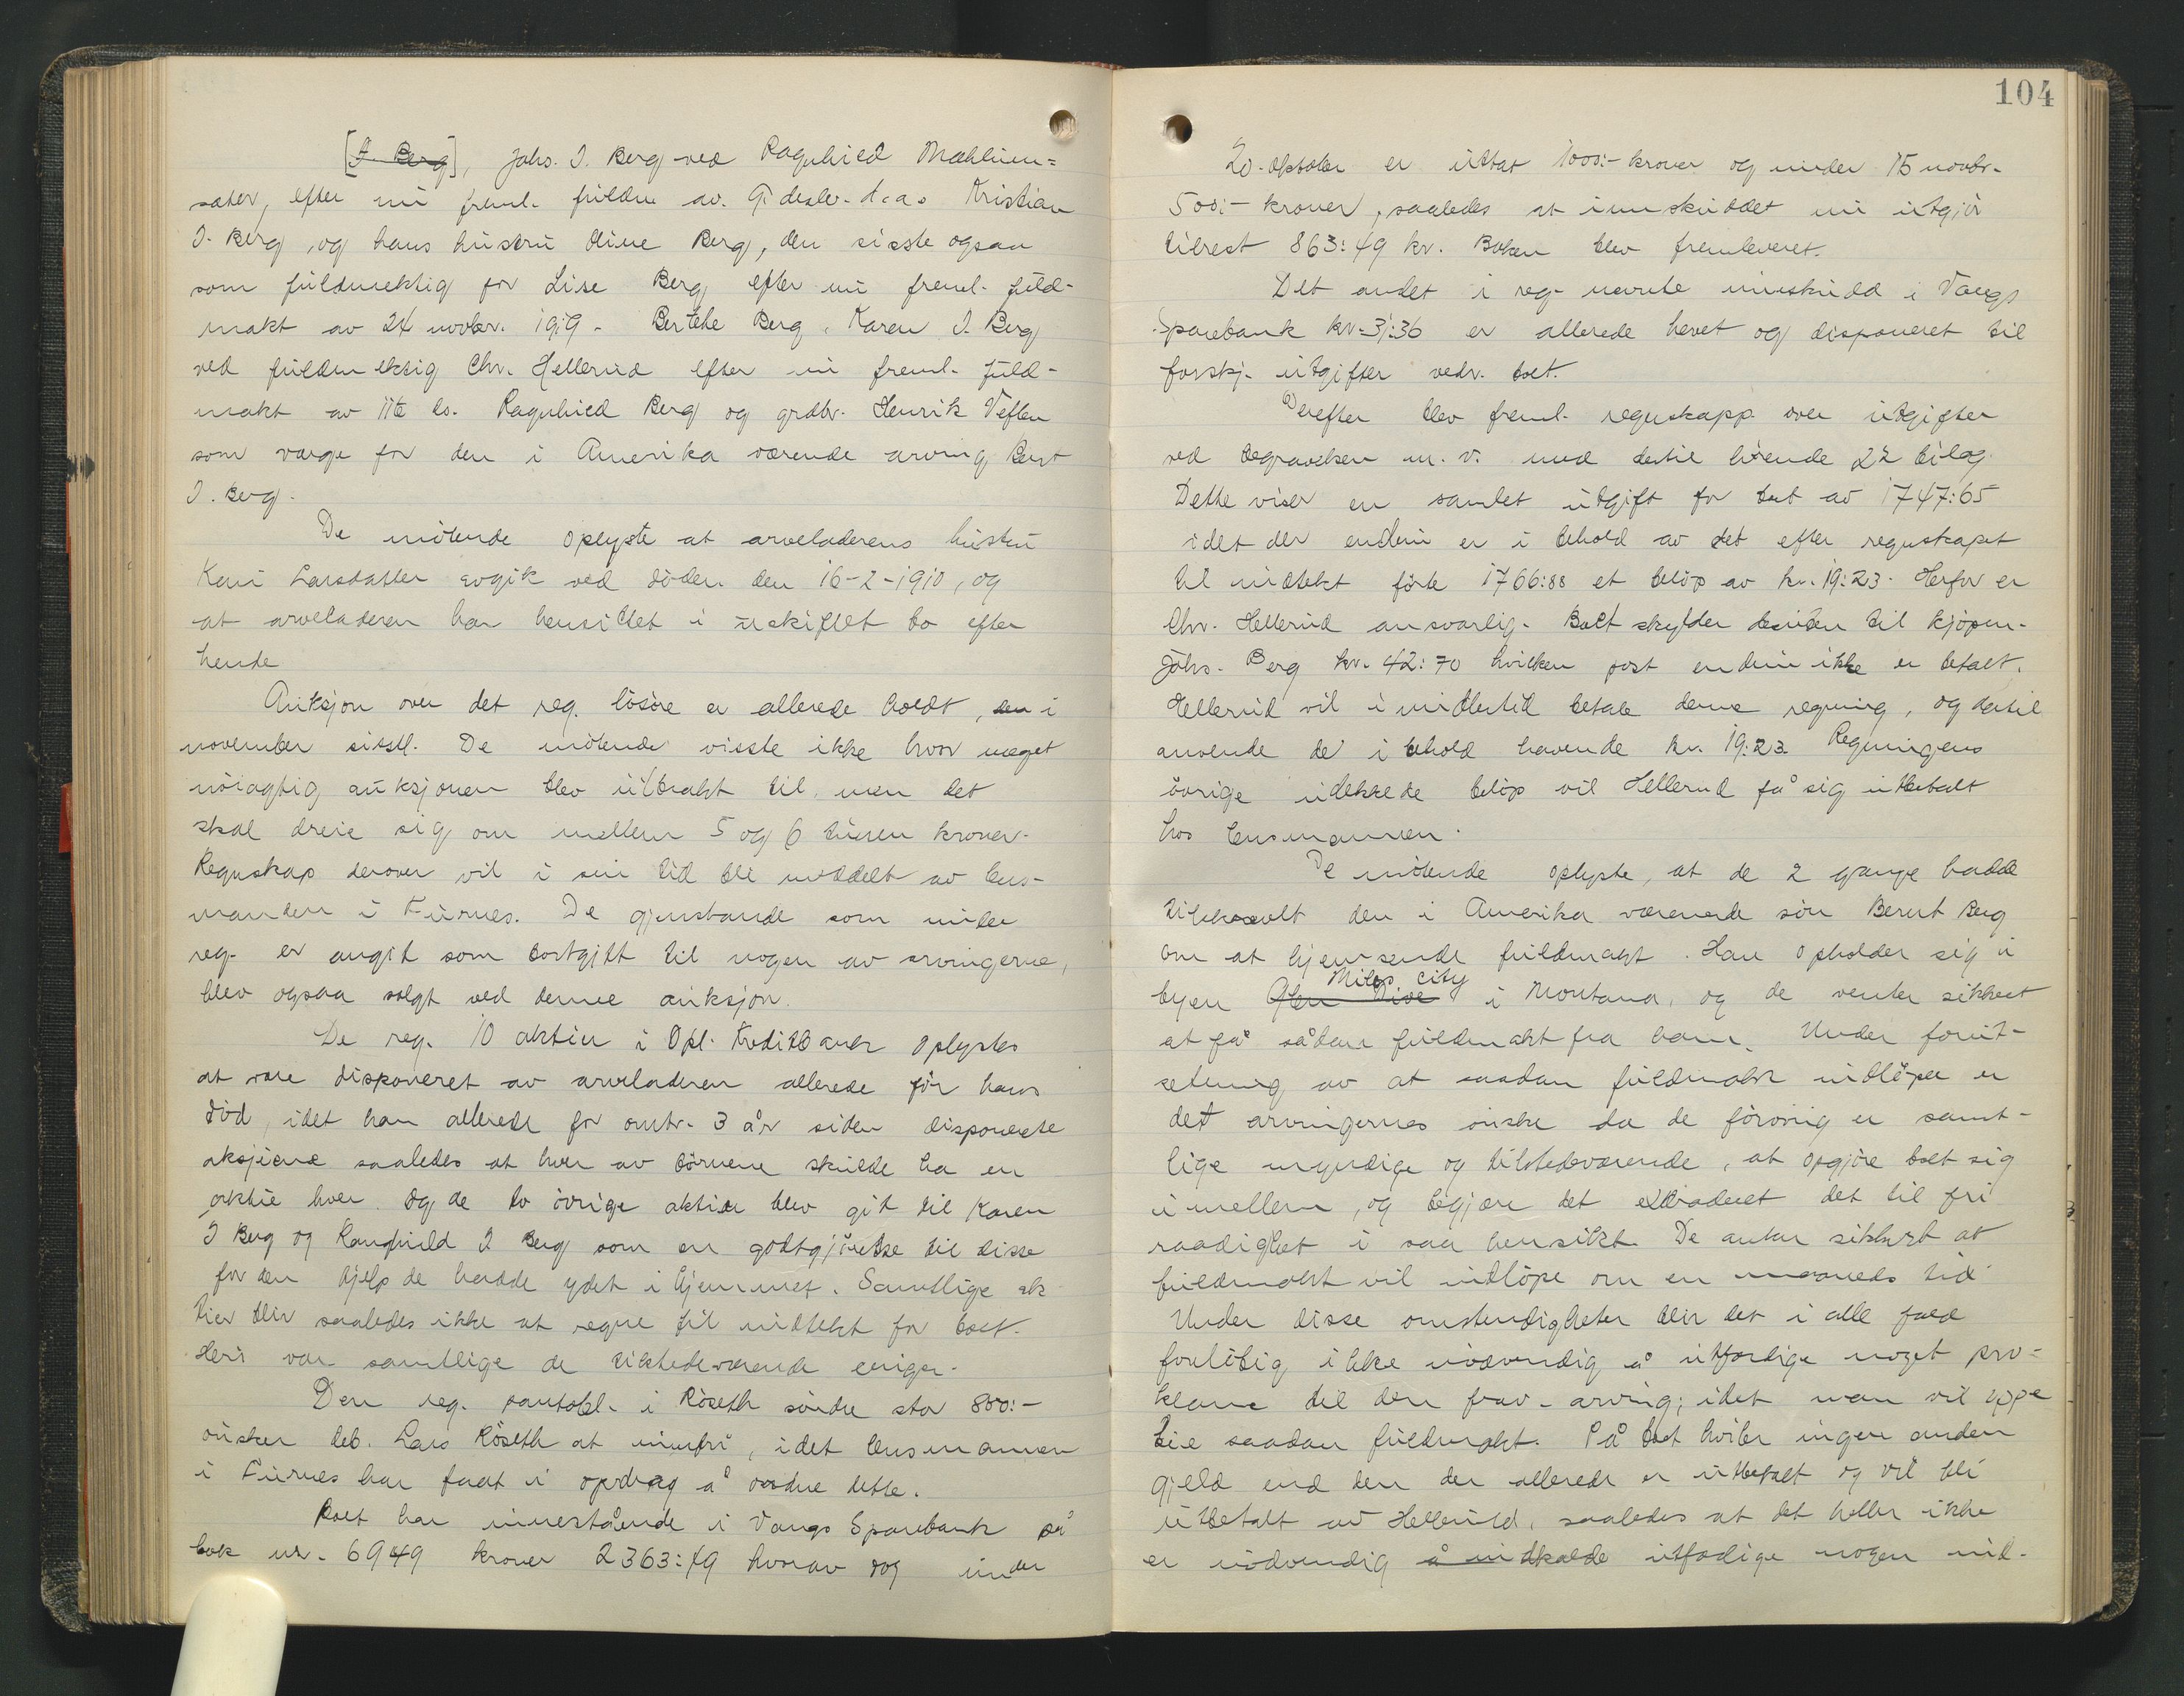 [J. Berg], Johs. J. Berg ved Ragnhild Mæhlum-
sæter, efter nu freml. fuldm. av. 9. desbr. d.a. Kristian
J. Berg, og hans hustru Oline Berg, den sisste ogsaa
som fuldmektig for Lise Berg efter nu freml. fuld-
makt av 24 novbr. 1919. Berthe Berg, Karen J. Berg
ved fuldmektig Chr. Hellerud efter nu freml. fuld-
makt av 11te ds. Ragnhild Berg og grdbr. Henrik Veflen
som verge for den i Amerika værende arving Bernt
J. Berg.
De møtende oplyste at arveladerens hustru
Kari Larsdatter avgik ved döden den 16-2-1910, og
at arveladeren har hensittet i uskiftet bo efter
hende
Auksjon over det reg. lösöre er allerede holdt, den i
november sisstl. De mötende visste ikke hvor meget
nöiagtig auksjonen blev utbrakt til, men det
skal dreie sig om mellem 5 og 6 tusen kroner.
Regnskap derover vil i sin tid bli meddelt av lens-
manden i Furnes. De gjenstande som under
reg. er angit som bortgitt til nogen av arvingerne,
blev ogsaa solgt ved denne auksjon.
De reg. 10 aktier i Opl. Kreditbank oplystes
at være disponeret av arveladeren allerede för hans
död, idet han allerede for omtr. 3 år siden disponerte
aksjerne saaledes at hver av börnene skulde ha en
aktie hver. Og de to övrige aktier blev git til Karen
J Berg og Ranghild J Berg som en godtgjörelse til disse
for den hjelp de hadde ydet i hjemmet. Samtlige ak
tier blir saaledes ikke at regne til indtekt for boet.
Heri var samtlige de tilstedeværende enige.
Den reg. pantobl. i Röseth söndre stor 800:-
önsker deb. Lars Röseth at innfri, idet lensmannen
i Furnes har faat i opdrag å ordne dette.
Boet har innestående i Vangs Sparebank på
bok nr. 6949 kroner 2363:49 hvorav dog under
104
20. oktober er uttat 1000:- kroner og under 15 novbr.
500:- kroner, saaledes at innskuddet nu utgjör
tilrest 863:49 kr. Boken blev fremleveret.
Det andet i reg. nevnte innskudd i Vangs
Sparebank kr. 31:36 er allerede hevet og disponeret til
forskj. utgifter vedr. boet.
Derefter blev freml. regnskapp over utgifter
ved begravelsen m.v. med dertil hörende 22 bilag.
Dette viser en samlet utgift for boet av 1747:65
idet der endnu er i behold av det efter regnskapet
til indtekt förte 1766:88 et belöp av kr. 19:23. Herfor er
Chr. Hellerud ansvarlig. Boet skylder desuten til kjöpm.
Johs. Berg kr. 42:70 hvilken post endnu ikke er betalt.
Hellerud vil imidlertid betale denne regning, og dertil
anvende de i behold havende kr. 19:23. Regningens
övrige udekkede belöp vil Hellerud få sig utbetalt
hos lensmannen.
De mötende oplyste, at de 2 gange hadde
tilskrevet den i Amerika værende sön Bernt Berg
om at hjemsende fuldmakt. Han opholder sig i
byen Glen Dive Miles city i Montana, og de venter sikkert
at få sådan fuldmakt fra ham. Under forut-
setning av at saadan fuldmakt indlöper er
det arvingernes önske da de forövrig er samt-
lige myndige og tilstedeværende, at opgjöre boet sig
imellem, og begjære det extraderet det til fri
raadighet i saa hensikt. De antar sikkert at
fuldmakt vil indlöpe om en maaneds tid.
Under disse omstendigheter blir det i alle fald
forelöbig ikke nödvendig å utferdige noget pro-
klama til den frav. arving; idet man vil oppe
bie saadan fuldmakt. På boet hviler ingen anden
gjeld end den der allerede er utbetalt og vil bli
utbetalt av Hellerud, saaledes at det heller ikke
er nödvendig å indkalde utfædige nogen ind-